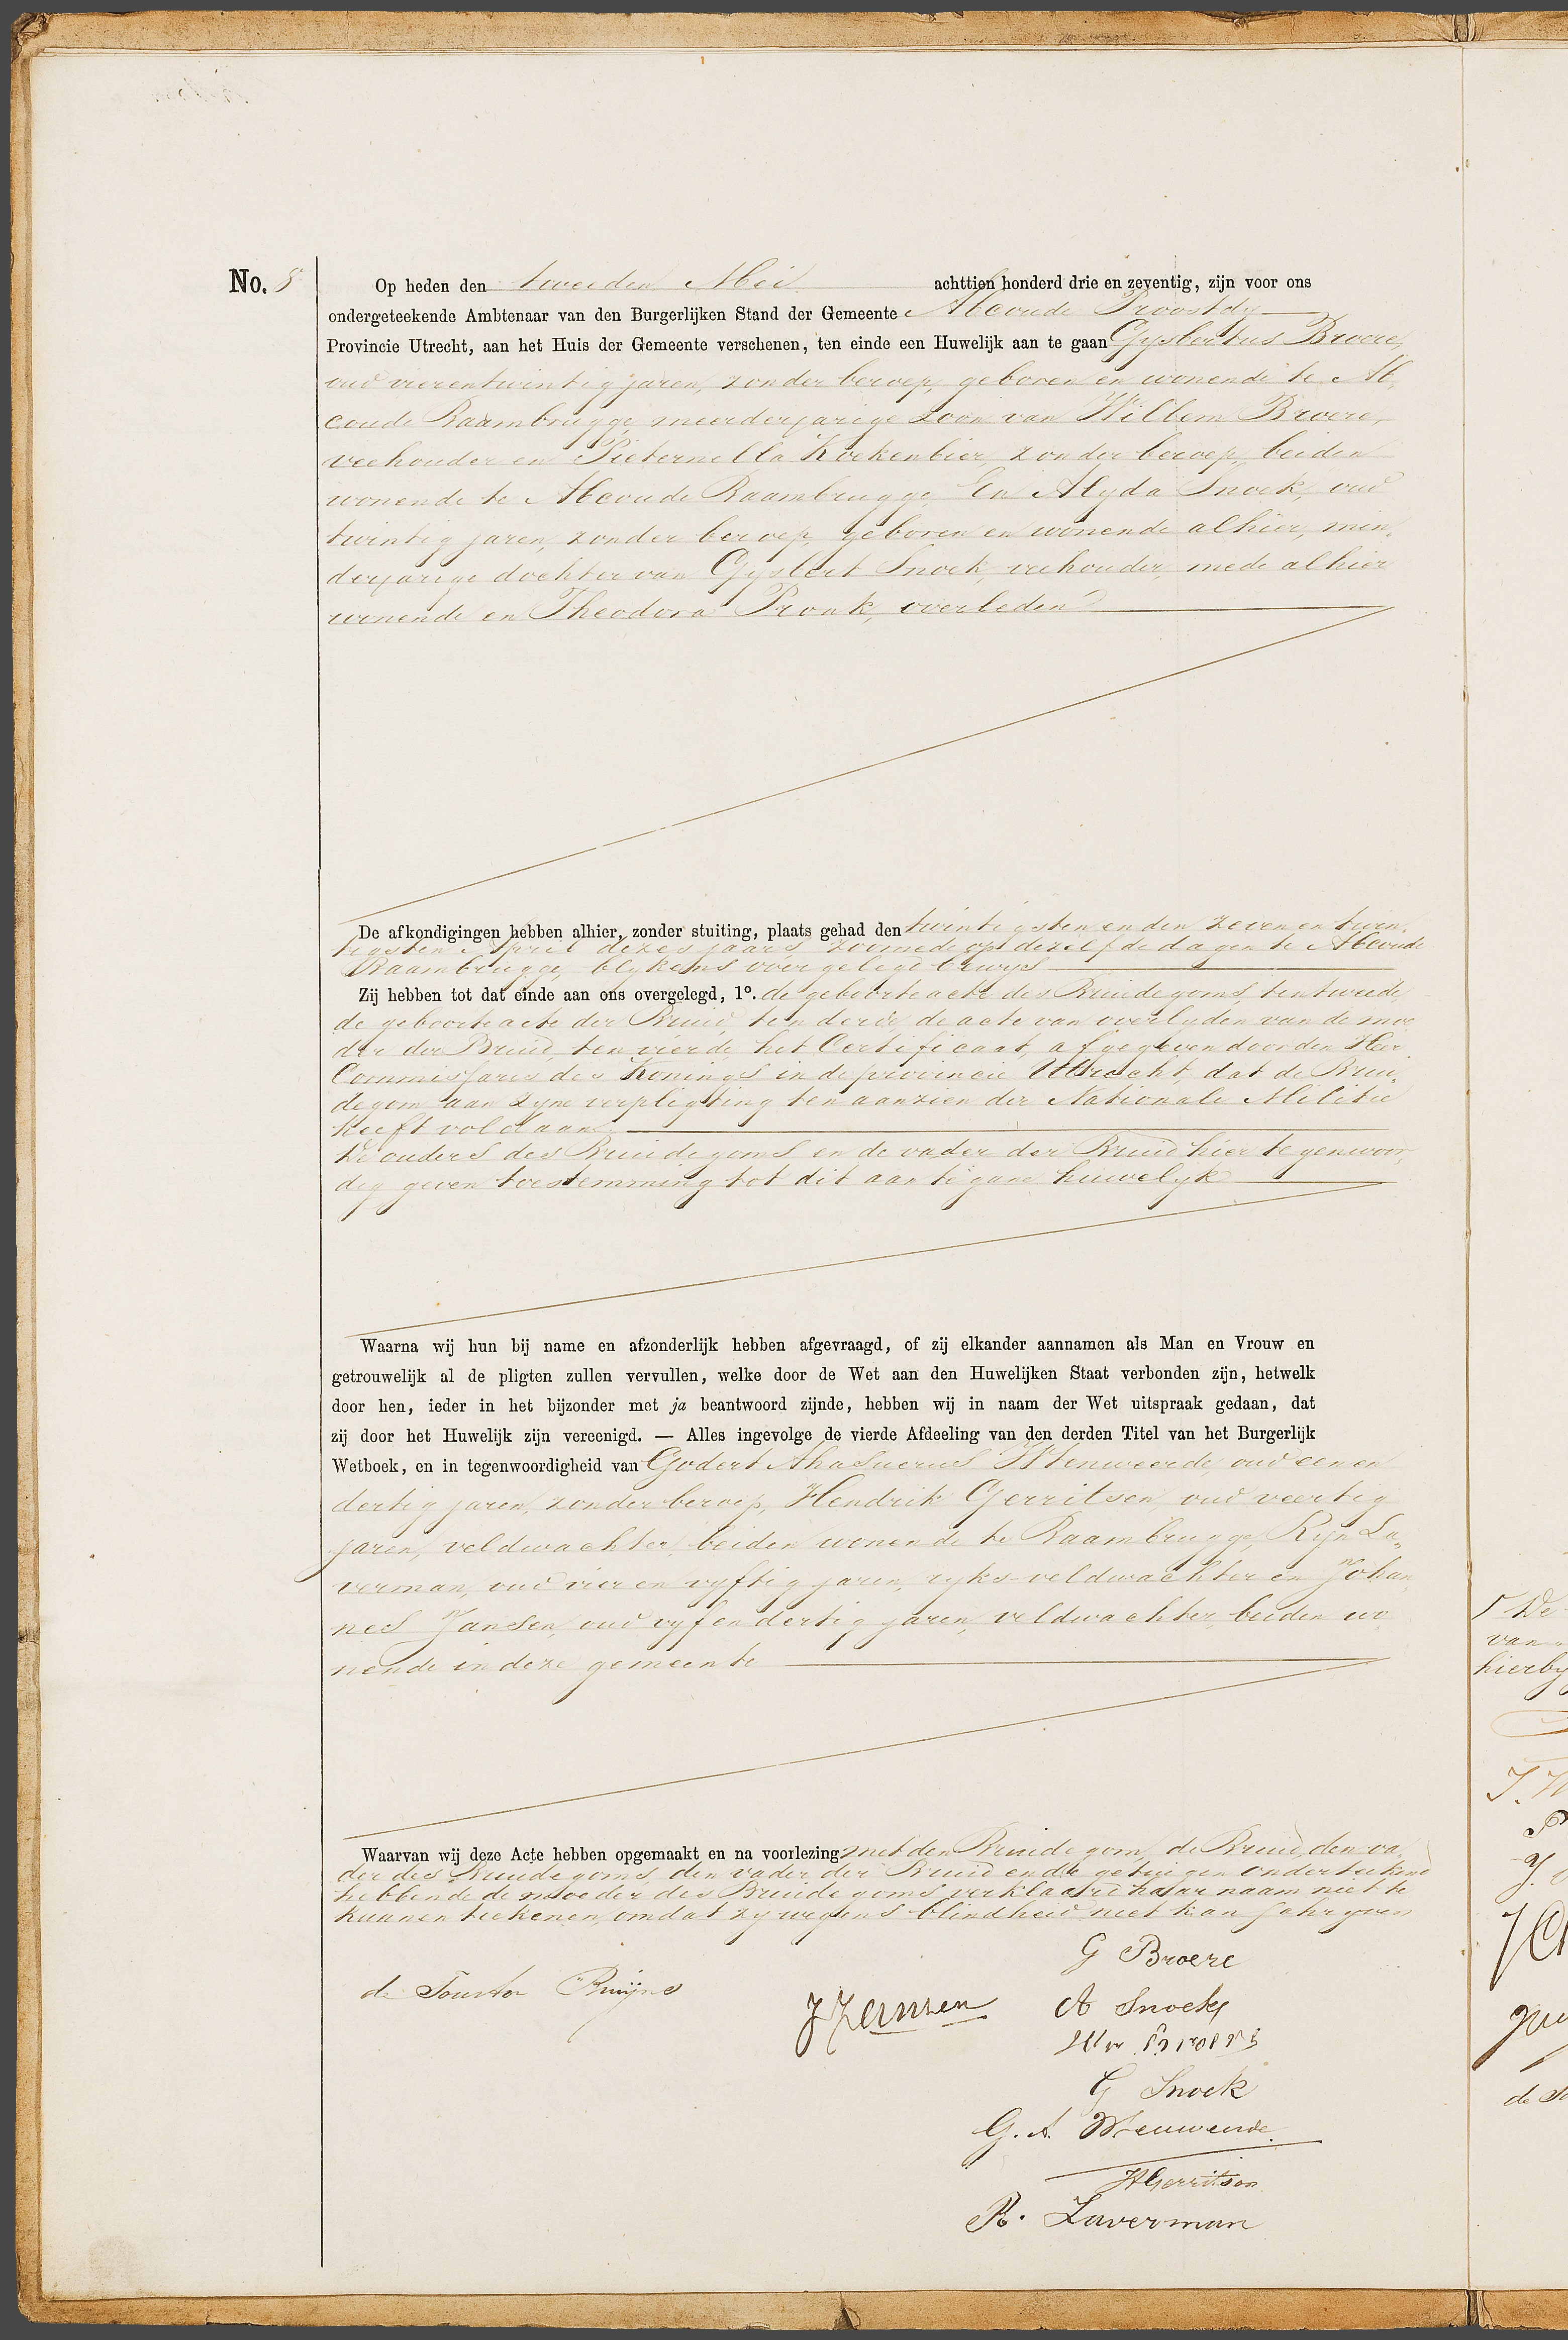 No. 8
Op heden den tweeden Mei achttien honderd drie en zeventig, zijn voor ons
ondergeteekende Ambtenaar van den Burgerlijken Stand der Gemeente Abcoude Proostdy
Provincie Utrecht, aan het Huis der Gemeente verschenen, ten einde een Huwelijk aan te gaan Gysbertus Broere,
oud vierentwintig jaren, zonder beroep, geboren en wonende te Ab,
coude Baambrugge, meerderjarige zoon van Willem Broere,
veehouder en Pieternella Koekenbier, zonder beroep, beiden
wonende te Abcoude Baambrugge En Alyda Snoek, oud
twintig jaren, zonder beroep, geboren en wonende alhier, min,
derjarige dochter van Gysbert Snoek, veehouder, mede alhier
wonende en Theodora Pronk, overleden
De afkondigingen hebben alhier, zonder stuiting, plaats gehad den twintigsten en den zeven en twin,
tigsten April dezes jaars, zoomede op dezelfde dagen te Abcoude
Baambrugge, blykens voorgelegd bewys
Zij hebben tot dat einde aan ons overgelegd, 1°. de geboorteacte des Bruidegoms, ten tweede,
de geboorteacte der Bruid, ten derde, de acte van overlyden van de moe
der der Bruid, ten vierde, het Certificaat, afgegeven door den Heer
Commissaris des Konings in de provincie Utrecht, dat de Brui,
degom aan zyne verpligting ten aanzien der Nationale Militie
heeft voldaan
De ouders des Bruidegoms en de vader der Bruid hier tegenwoor,
dig geven toestemming tot dit aan te gane huwelyk
Waarna wij hun bij name en afzonderlijk hebben afgevraagd, of zij elkander aannamen als Man en Vrouw en
getrouwelijk al de pligten zullen vervullen, welke door de Wet aan den Huwelijken Staat verbonden zijn, hetwelk
door hen, ieder in het bijzonder met ja beantwoord zijnde, hebben wij in naam der Wet uitspraak gedaan, dat
zij door het Huwelijk zijn vereenigd. — Alles ingevolge de vierde Afdeeling van den derden Titel van het Burgerlijk
Wetboek, en in tegenwoordigheid van Godert Ahasuerus Wtenweerde, oud een en
dertig jaren, zonder beroep, Hendrik Gerritsen, oud veertig
jaren, veldwachter, beiden wonende te Baambrugge, Ryn La,
verman, oud vier en vyftig jaren, ryks-veldwachter en Johan,
nes Jansen, oud vyf en dertig jaren, veldwachter, beiden wo,
nende in deze gemeente
Waarvan wij deze Acte hebben opgemaakt en na voorlezing met den Bruidegom, de Bruid, den va,
der des Bruidegoms, den vader der Bruid en de getuigen onderteekend
hebbende de moeder des Bruidegoms verklaard haar naam niet te
kunnen teekenen, omdat zy wegens blindheid niet kan schryven
G Broere
de Bruijns
J Jansen
A Snoek
Wm Broere
G Snoek
G. A. Wtenweerde.
H Gerritsen
R. Laverman
De
van
hierby